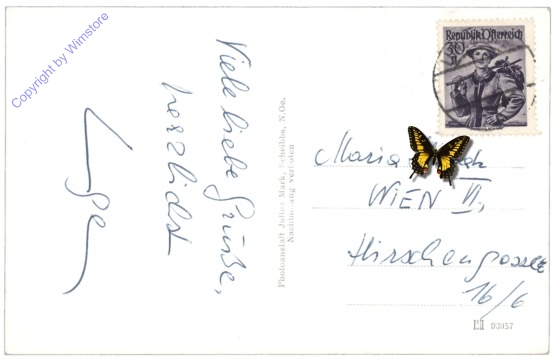 Copyright by Wimstore
Viele liebe Grüße,
herzlichst
Republik Österreich
30
g
Photoanstalt Julius Mark, Scheibbs, N.Oe.
Nachahmung verboten
Maria
WIEN VI,
Hirschengasse
16/6
03957